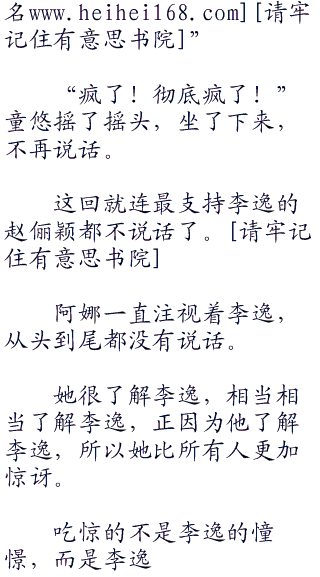 名www.heihei168.com][请牢
记住有意思书院]”
“疯了！彻底疯了！”
童悠摇了摇头，坐了下来，
不再说话。
这回就连最支持李逸的
赵俪颖都不说话了。[请牢记
住有意思书院]
阿娜一直注视着李逸，
从头到尾都没有说话。
她很了解李逸，相当相
当了解李逸，正因为他了解
李逸，所以她比所有人更加
惊讶。
吃惊的不是李逸的憧
憬，而是李逸